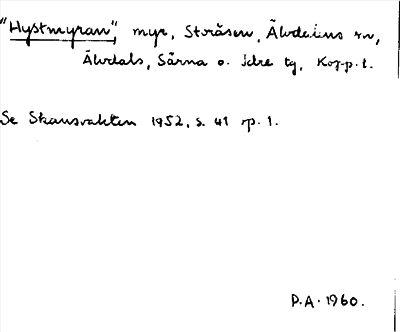 "Hystmyran", myr, Storåsen, Älvdalens sn,
Älvdals, Särna o. Idre tg, Kop-p. l.
Se Skansvakten 1952, s. 41 sp. 1.
P.A. 1960.